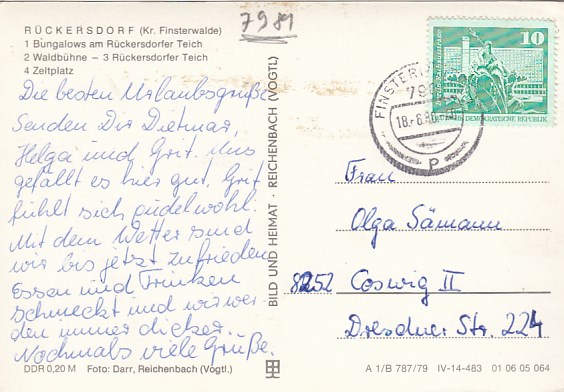 RÜCKERSDORF (Kr. Finsterwalde)
1 Bungalows am Rückersdorfer Teich
2 Waldbühne – 3 Rückersdorfer Teich
4 Zeltplatz
7981
Die besten Urlaubsgrüße
senden Dir Dietmar,
Helga und Grit. Uns
gefällt es hier gut. Grit
fühlt sich pudelwohl.
Mit dem Wetter sind
wir bis jetzt zufrieden
Essen und Trinken
schmeckt und wir wer-
den immer dicker.
Nochmals viele Grüße.
DDR 0,20 M Foto: Darr, Reichenbach (Vogtl.)
BILD UND HEIMAT · REICHENBACH (VOGTL)
10
18.-6.80
P
Frau
Olga Sämann
8252 Coswig II
Dresdner Str. 224
A 1/B 787/79 IV-14-483 01 06 05 064